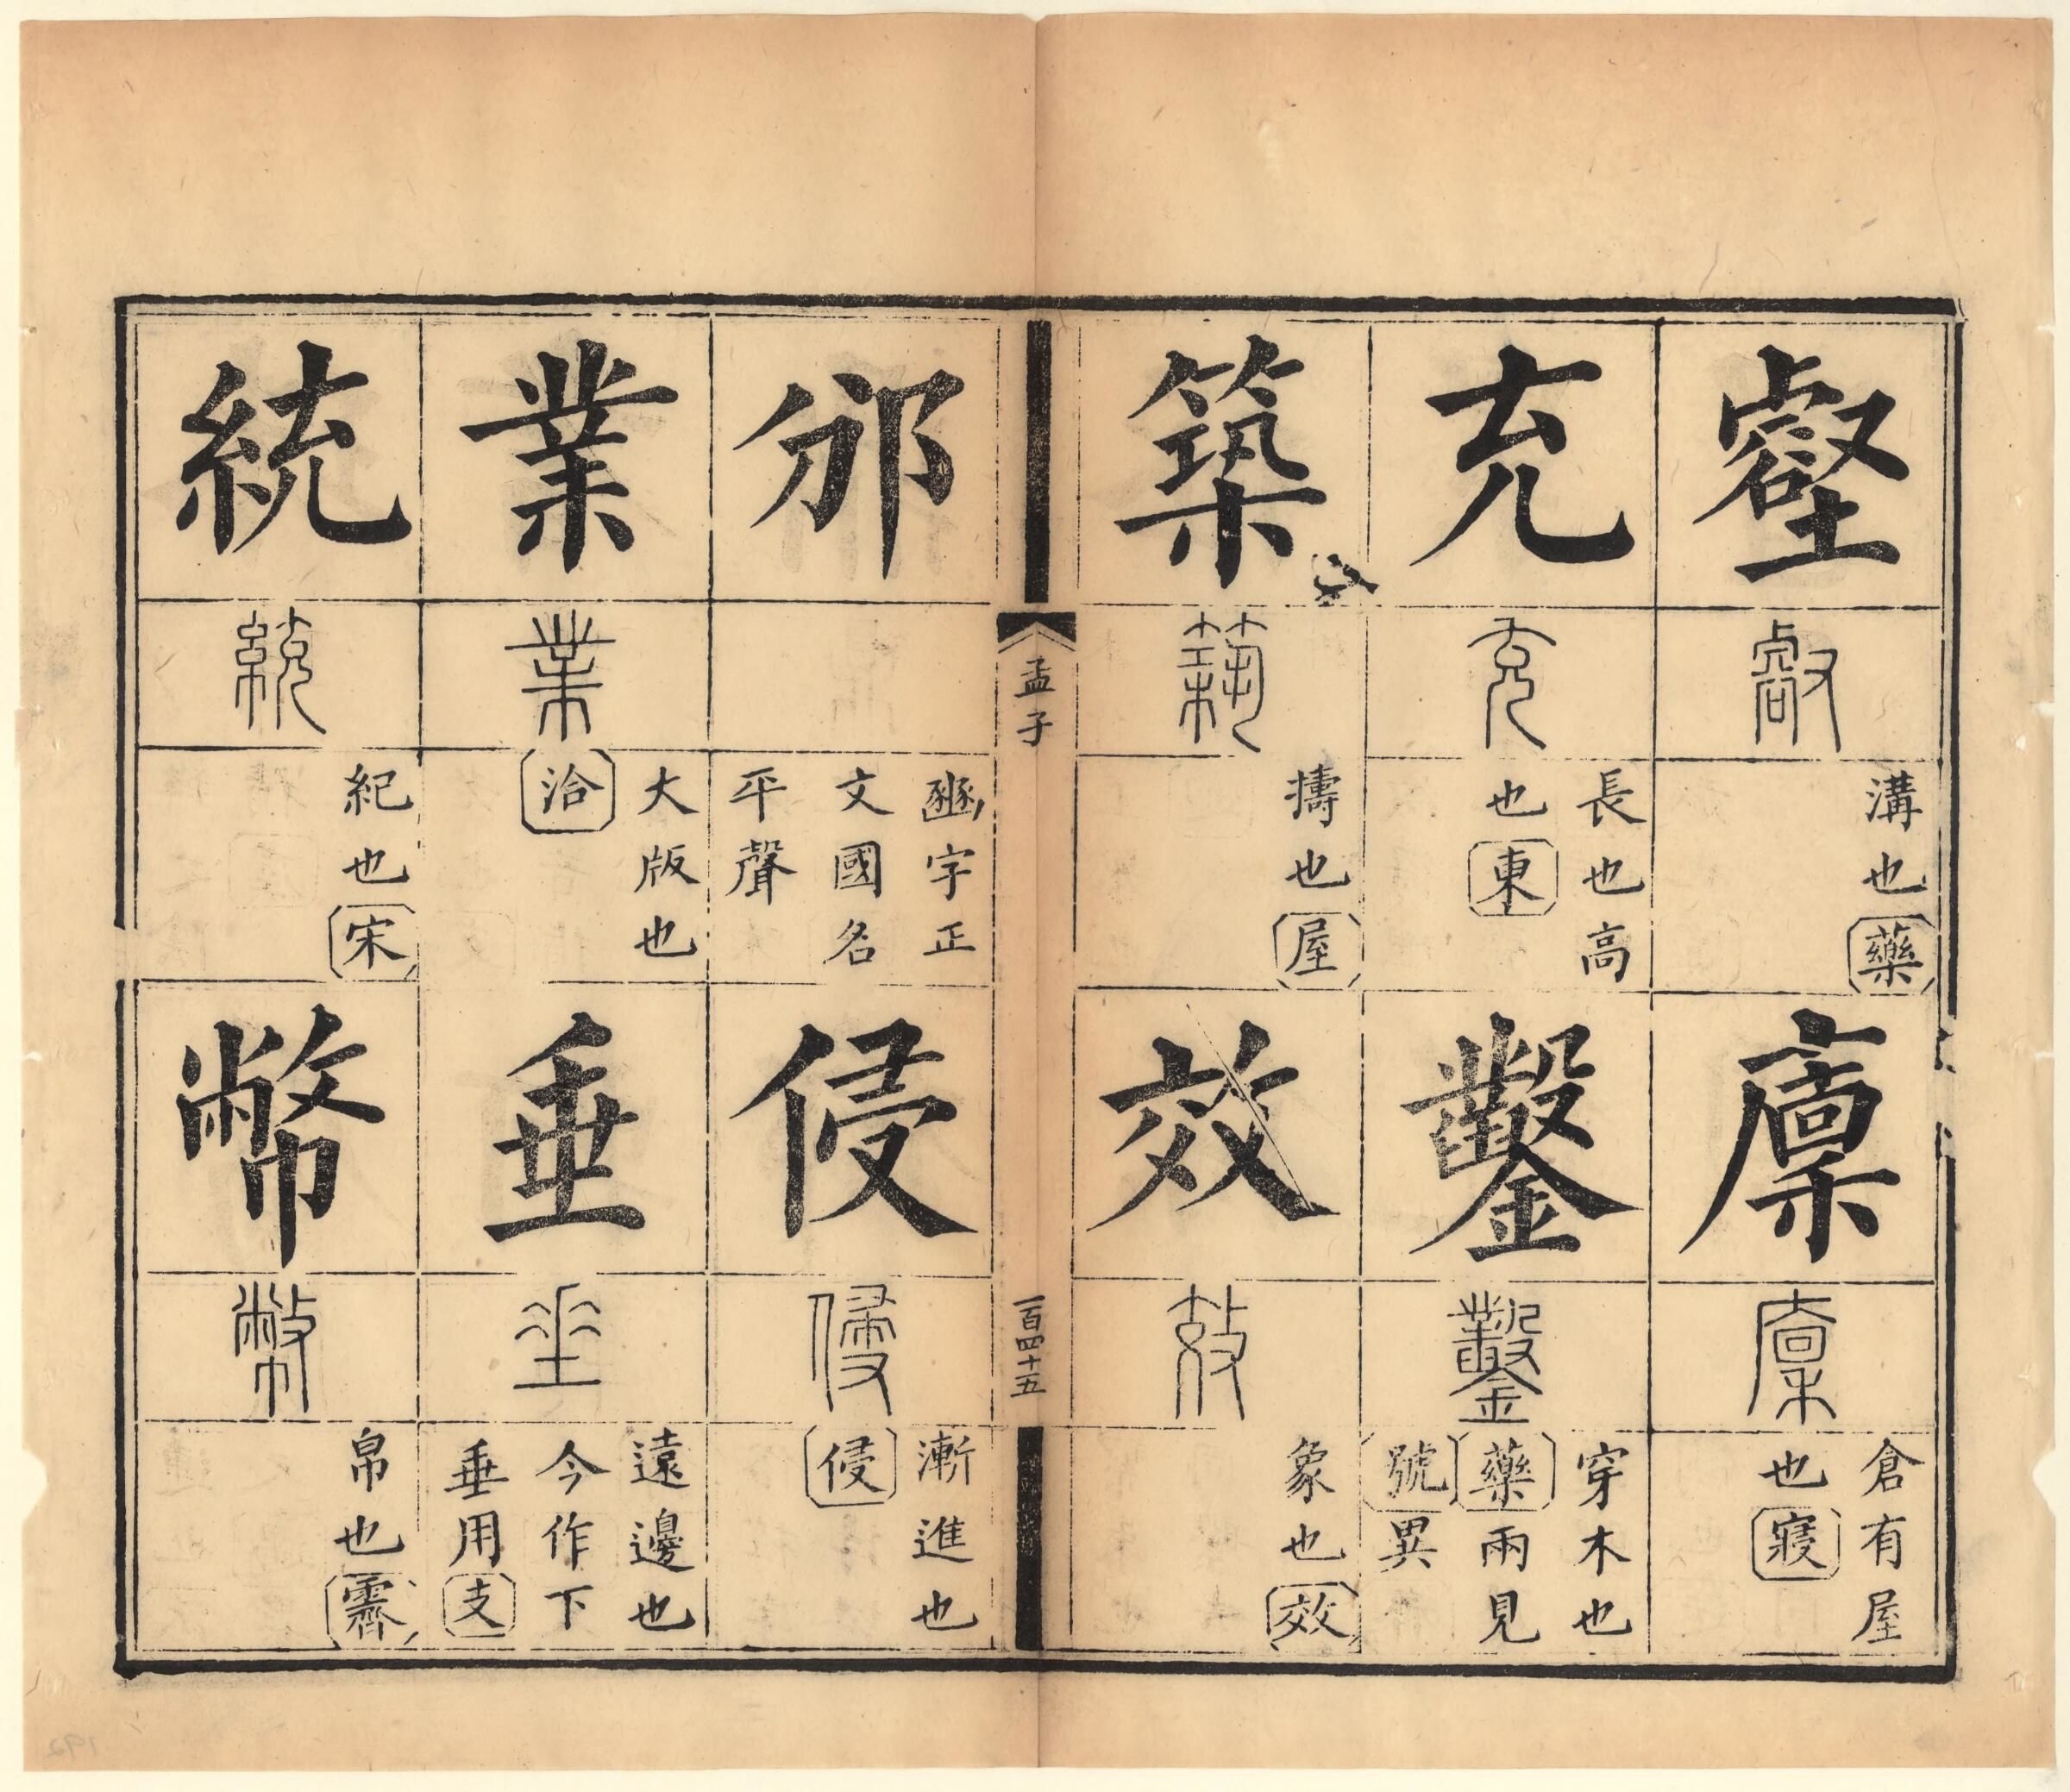 壑
㕡
溝也藥
廩
廩
倉有屋
也寢
充
充
長也高
也東
鑿
鑿
穿木也
藥兩見
號異
築
築
擣也屋
效
效
象也效
孟子
一百四十五
邠
豳字正
文國名
平聲
侵
侵
漸進也
侵
業
業
大版也
洽
垂
垂
遠邊也
今作下
垂用支
統
統
紀也宋
幣
幣
帛也霽